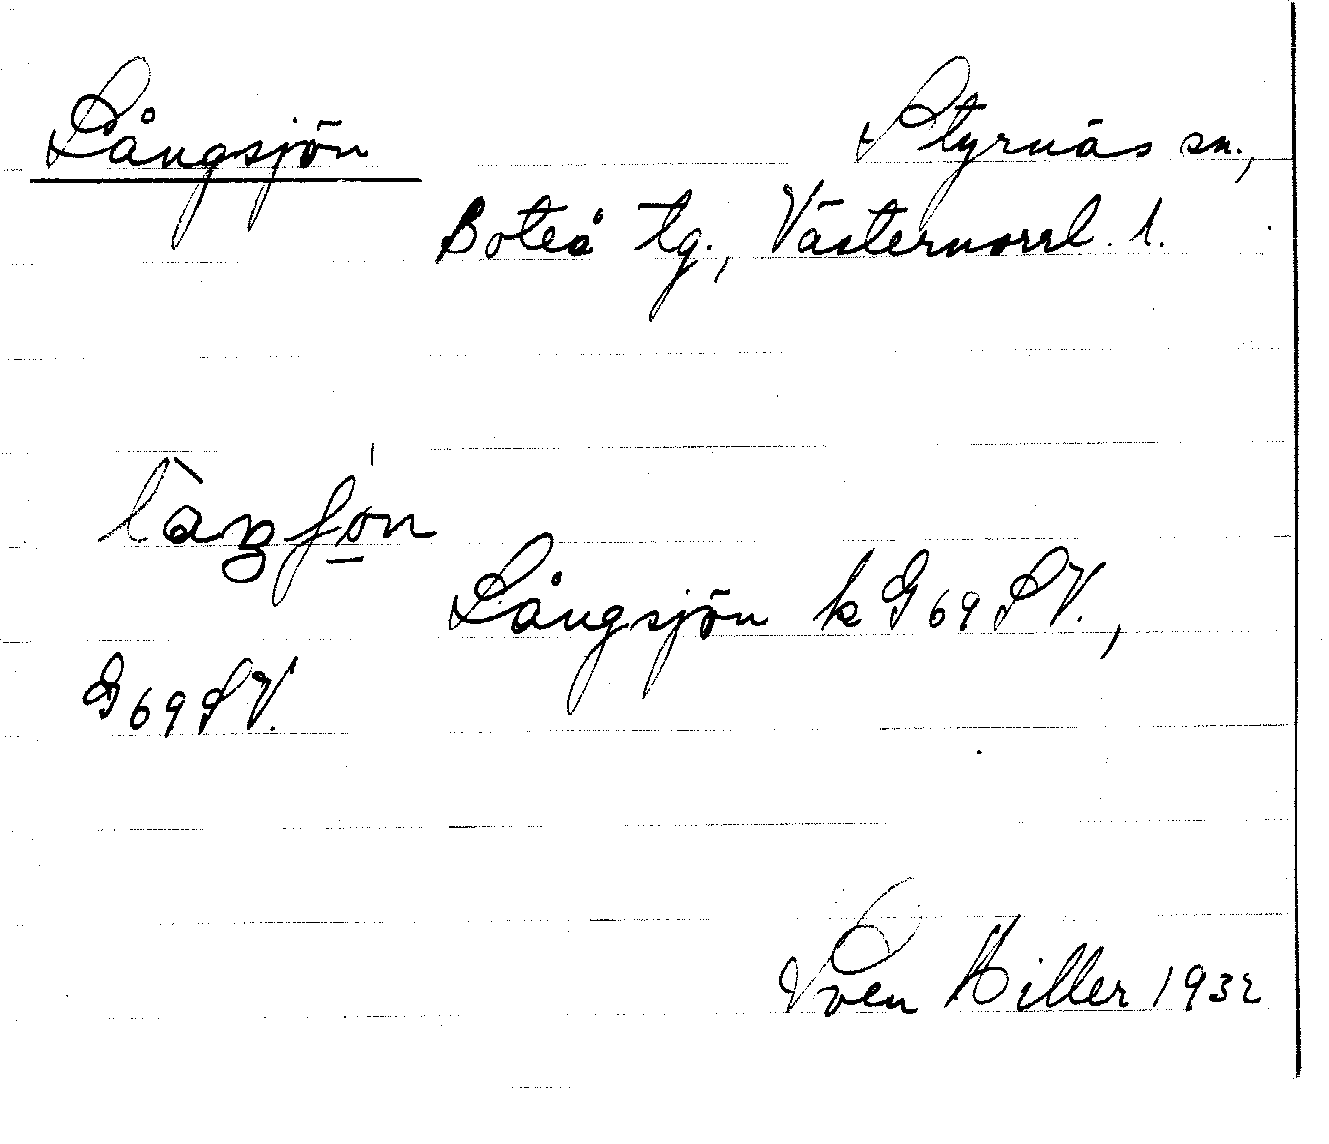 Långsjön Styrnäs sn.,
Boteå tg., Västernorrl. l.
Långsjön k G 69 SV.,
G 69 SV.
Sven Hiller 1932